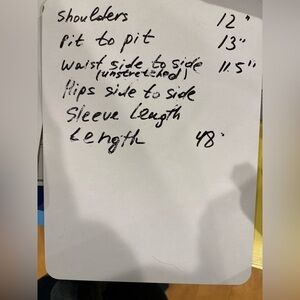 Shoulders 12"
Pit to pit 13"
Waist side to side 11.5"
(unstretched)
Hips side to side
Sleeve Length
Length 48"